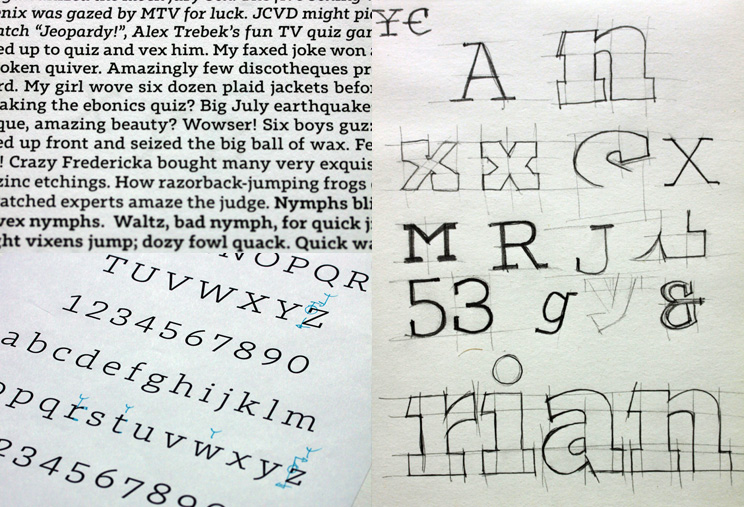 nix was gazed by MTV for luck. JCVD might pi
atch “Jeopardy!”, Alex Trebek’s fun TV quiz gar
ed up to quiz and vex him. My faxed joke won
oken quiver. Amazingly few discotheques pr
rd. My girl wove six dozen plaid jackets befo
aking the ebonics quiz? Big July earthquake
que, amazing beauty? Wowser! Six boys guz
ed up front and seized the big ball of wax. Fe
! Crazy Fredericka bought many very exquis
zinc etchings. How razorback-jumping frogs
atched experts amaze the judge. Nymphs bli
vex nymphs. Waltz, bad nymph, for quick j
ht vixens jump; dozy fowl quack. Quick wa
NOPQR
TUVWXYZ
1234567890
abcdefghijklm
opqrstuvwxyz
234567890
¥€
A n
x x X
M R J
53 g y &
rian